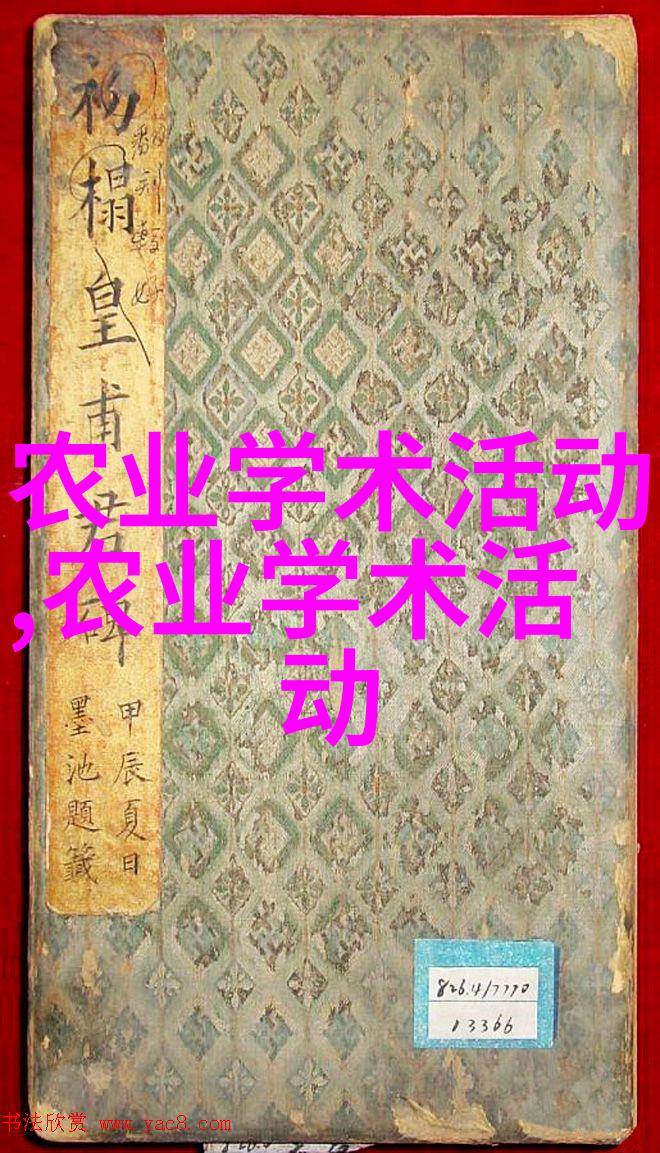 初榻皇甫君碑
甲辰夏日
墨池題籤
农业学术活动
,农业学术活
动
826.4/7770
13366
书法欣赏 www.yac8.com